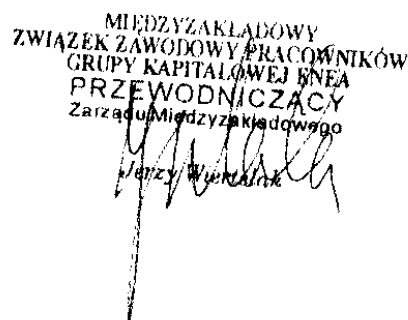 MIĘDZYZAKŁADOWY
ZWIĄZEK ZAWODOWY PRACOWNIKÓW
GRUPY KAPITAŁOWEJ ENEA
PRZEWODNICZĄCY
Zarządu Międzyzakładowego
Jerzy